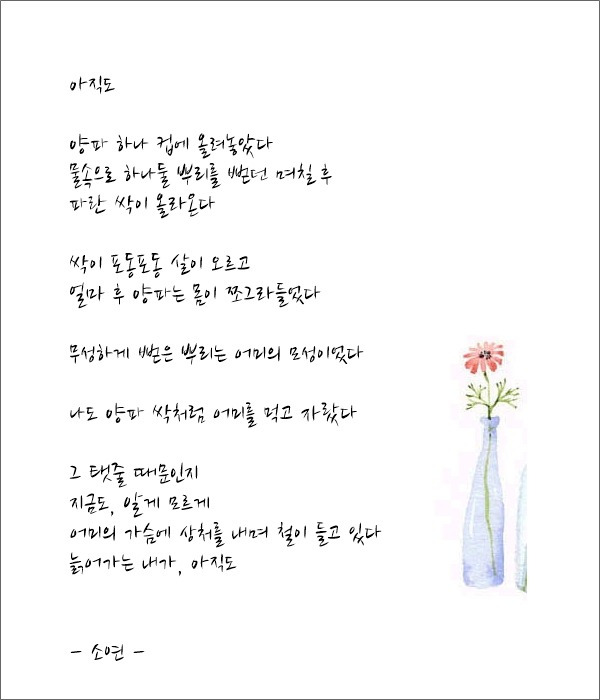 아직도
양파 하나 컵에 올려놓았다
물속으로 하나둘 뿌리를 뻗던 며칠 후
파란 싹이 올라온다
싹이 포동포동 살이 오르고
얼마 후 양파는 몸이 쪼그라들었다
무성하게 뻗은 뿌리는 어미의 모성이었다
나도 양파 싹처럼 어미를 먹고 자랐다
그 탯줄 때문인지
지금도, 알게 모르게
어미의 가슴에 상처를 내며 철이 들고 있다
늙어가는 내가, 아직도
- 소연 -